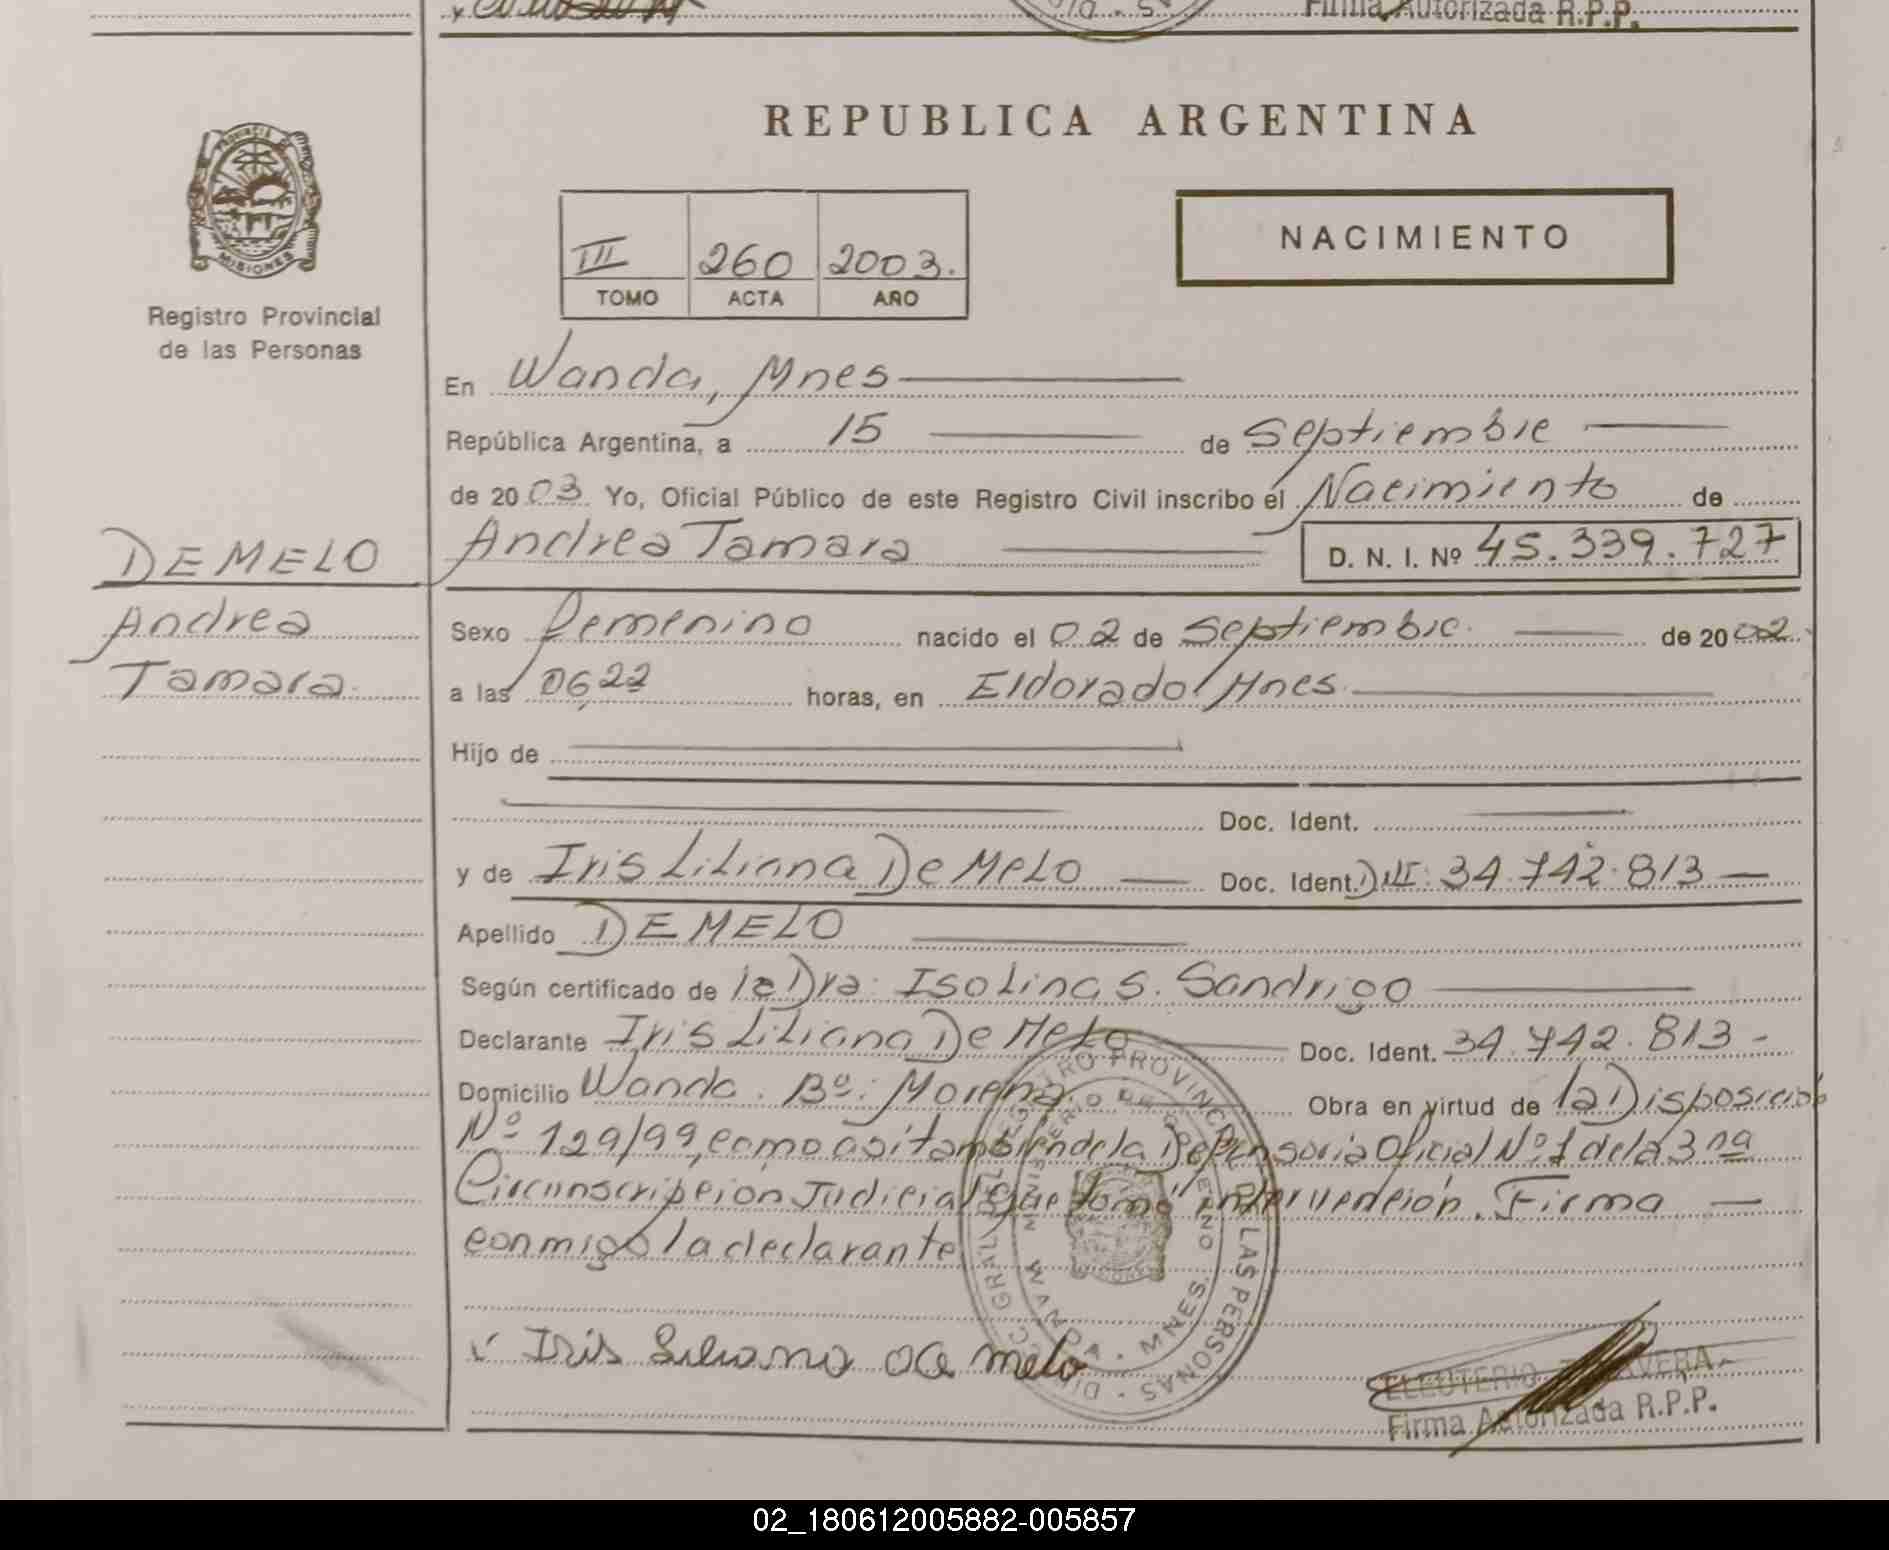 Firma Autorizada R.P.P.
REPUBLICA ARGENTINA
PROVINCIA DE MISIONES
Registro Provincial
de las Personas
III 260 2003.
TOMO ACTA AÑO
NACIMIENTO
En Wanda, Mnes
República Argentina, a 15 de Septiembre
de 2003 Yo, Oficial Público de este Registro Civil inscribo el Nacimiento de
DE MELO
Andrea
Tamara
Andrea Tamara D. N. I. Nº 45.339.727
Sexo Femenino nacido el 02 de Septiembre de 2002
a las 06,22 horas, en Eldorado Mnes.
Hijo de
Doc. Ident.
y de Iris Liliana De Melo Doc. Ident. DNI: 34.742.813
Apellido DE MELO
Según certificado de la Dra: Isolina S. Sandrigo
Declarante Iris Liliana De Melo Doc. Ident. 34.742.813-
Domicilio Wanda. Bº: Morena Obra en virtud de la Disposición
Nº 129/99, como asi tambien de la Defensoria Oficial Nº 1 de la 3na
Circunscripcion Judicial que tomo intervención. Firma
conmigo la declarante
Iris Liliana de melo
REGISTRO PROVINCIAL DE LAS PERSONAS
MINISTERIO DE GOBIERNO
WANDA - MNES.
ELEUTERIO TALAVERA
Firma Autorizada R.P.P.
02_180612005882-005857